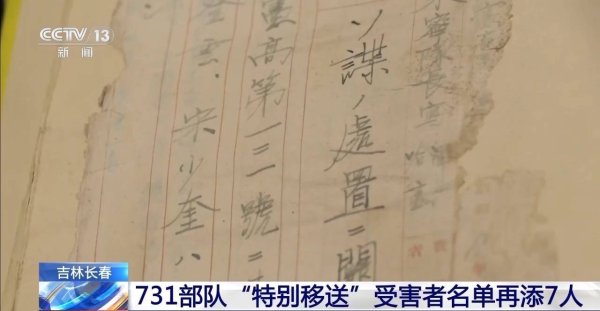 CCTV 13
新闻
寧隊長宛
ソ諜ノ處置ニ關
憲高第一二一號ニ
宋少奎ハ
吉林长春
731部队“特别移送”受害者名单再添7人